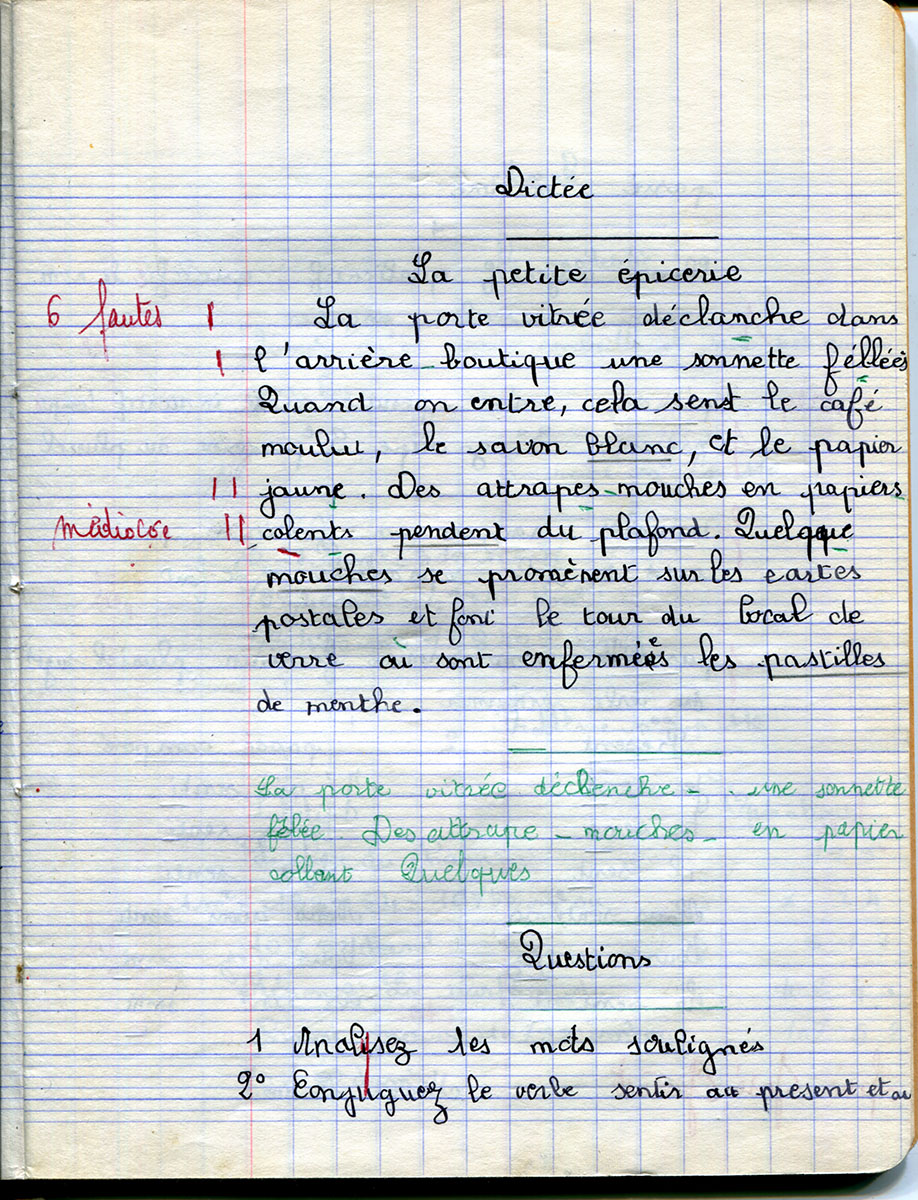 Dictée
La petite épicerie
6 fautes
La porte vitrée déclanche dans
l'arrière-boutique une sonnette féllées
Quand on entre, cela sent le café
moulu, le savon blanc, et le papier
jaune. Des attrapes-mouches en papiers
médiocre
colents pendent du plafond. Quelqque
mouches se promènent sur les cartes
postales et font le tour du local de
verre où sont enfermées les pastilles
de menthe.
La porte vitrée déclenche - . une sonnette
fêlée. Des attrape-mouches - en papier
collant Quelques
Questions
1 Analysez les mots soulignés
2° Conjuguez le verbe sentir au présent et au